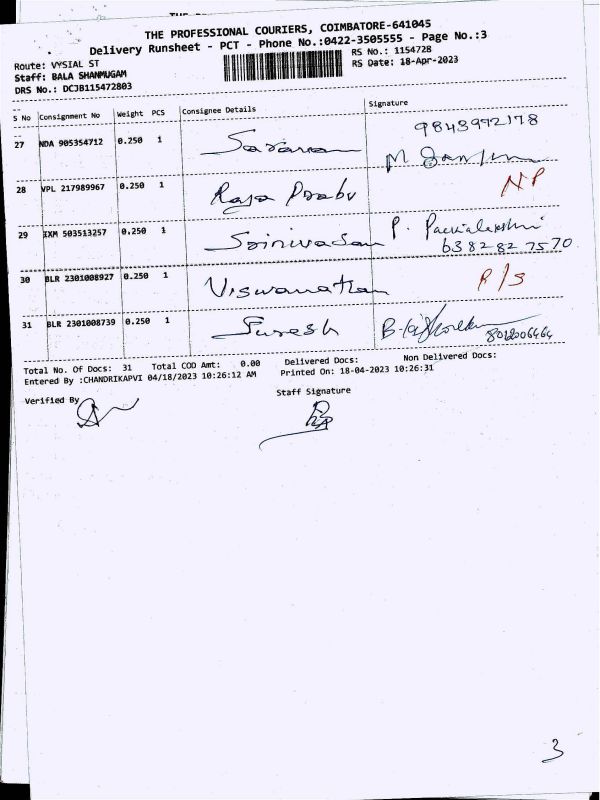 THE PROFESSIONAL COURIERS, COIMBATORE-641045
Delivery Runsheet - PCT - Phone No.:0422-3505555 - Page No.:3
Route: VYSIAL ST
RS No.: 1154728
Staff: BALA SHANMUGAM
RS Date: 18-Apr-2023
DRS No.: DCJB115472803
S No Consignment No Weight PCS Consignee Details Signature
27 NDA 905354712 0.250 1 Saravan 9843992178
M
28 VPL 217989967 0.250 1 Raja Prabu NP
29 IXM 503513257 0.250 1 Srinivasan P.
63828 27570
30 BLR 2301008927 0.250 1 Viswanathan R/S
31 BLR 2301008739 0.250 1 Suresh
Total No. Of Docs: 31 Total COD Amt: 0.00 Delivered Docs: Non Delivered Docs:
Entered By :CHANDRIKAPVI 04/18/2023 10:26:12 AM Printed On: 18-04-2023 10:26:31
Verified By
Staff Signature
3